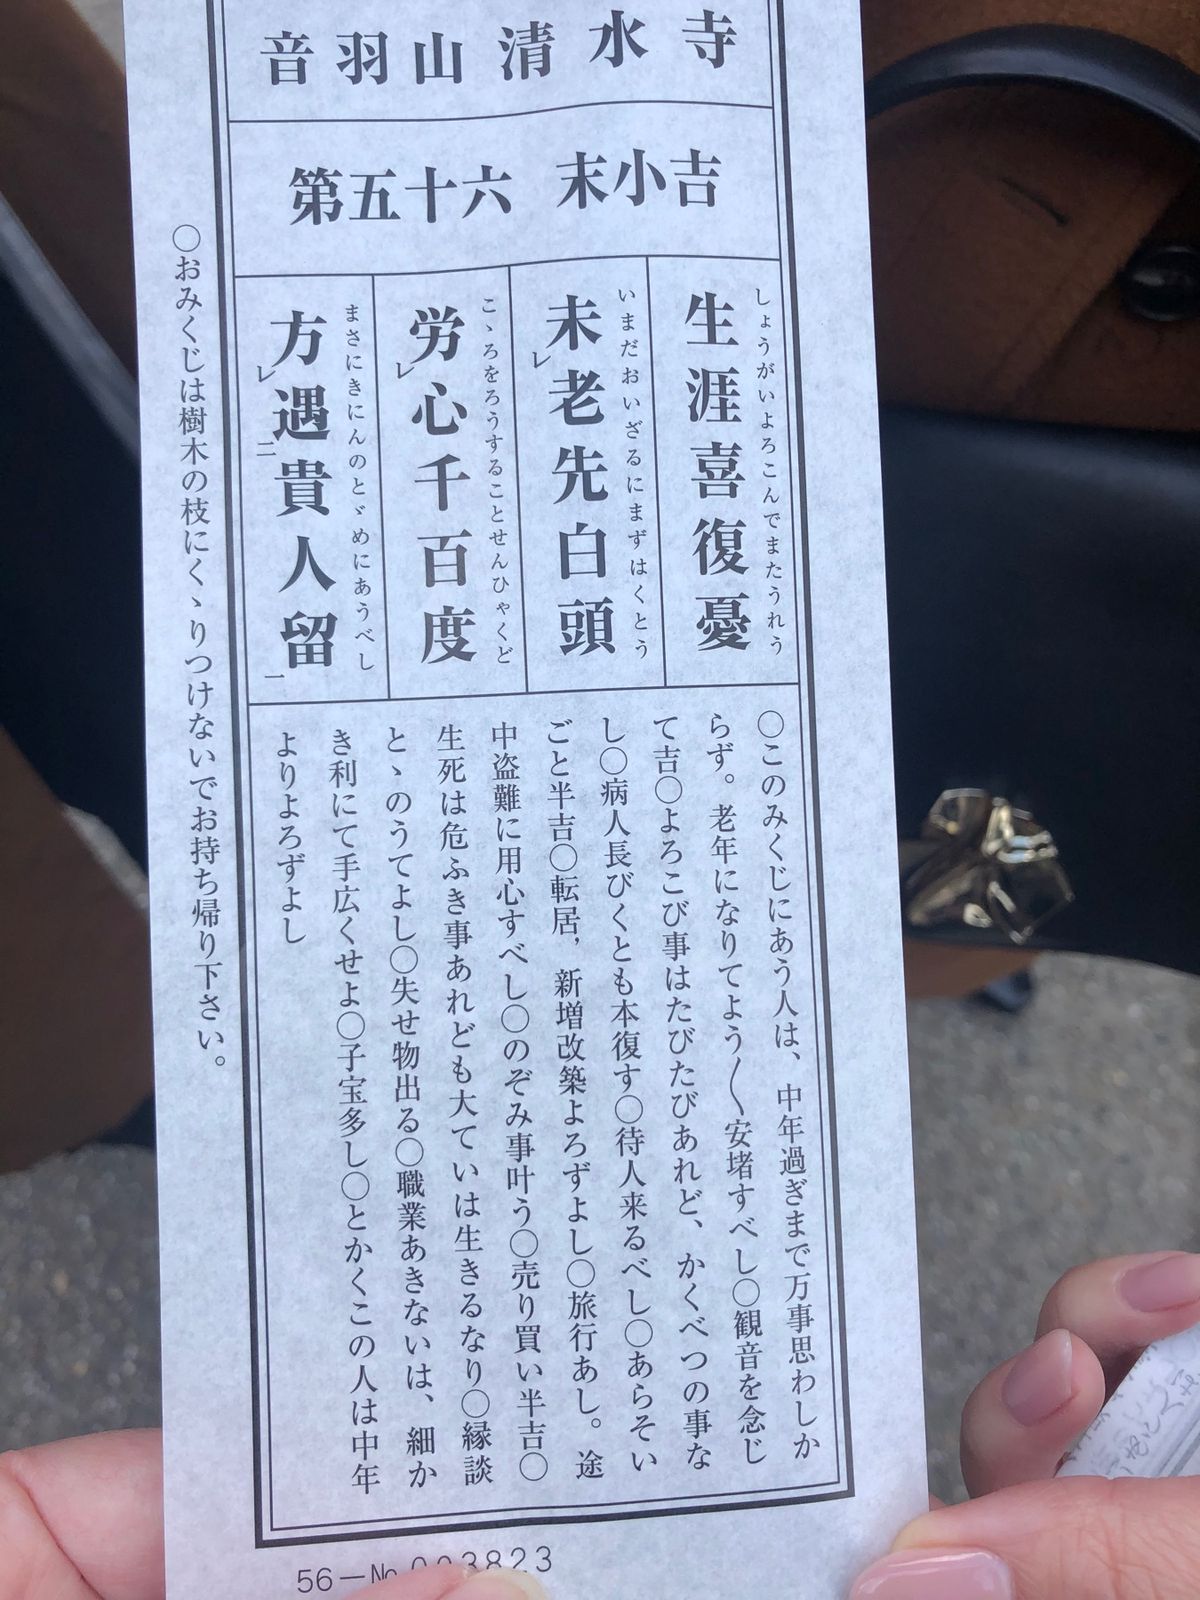 音羽山清水寺
第五十六 末小吉
しょうがいよろこんでまたうれう
生涯喜復憂
いまだおいざるにまずはくとう
未レ老先白頭
こゝろをろうすることせんひゃくど
労レ心千百度
まさにきにんのとゞめにあうべし
方レ遇二貴人留一
〇このみくじにあう人は、中年過ぎまで万事思わしか
らず。老年になりてよう〱安堵すべし〇観音を念じ
て吉〇よろこび事はたびたびあれど、かくべつの事な
し〇病人長びくとも本復す〇待人来るべし〇あらそい
ごと半吉〇転居，新増改築よろずよし〇旅行あし。途
中盗難に用心すべし〇のぞみ事叶う〇売り買い半吉〇
生死は危ふき事あれども大ていは生きるなり〇縁談
とゝのうてよし〇失せ物出る〇職業あきないは、細か
き利にて手広くせよ〇子宝多し〇とかくこの人は中年
よりよろずよし
〇おみくじは樹木の枝にくゝりつけないでお持ち帰り下さい。
56－№003823